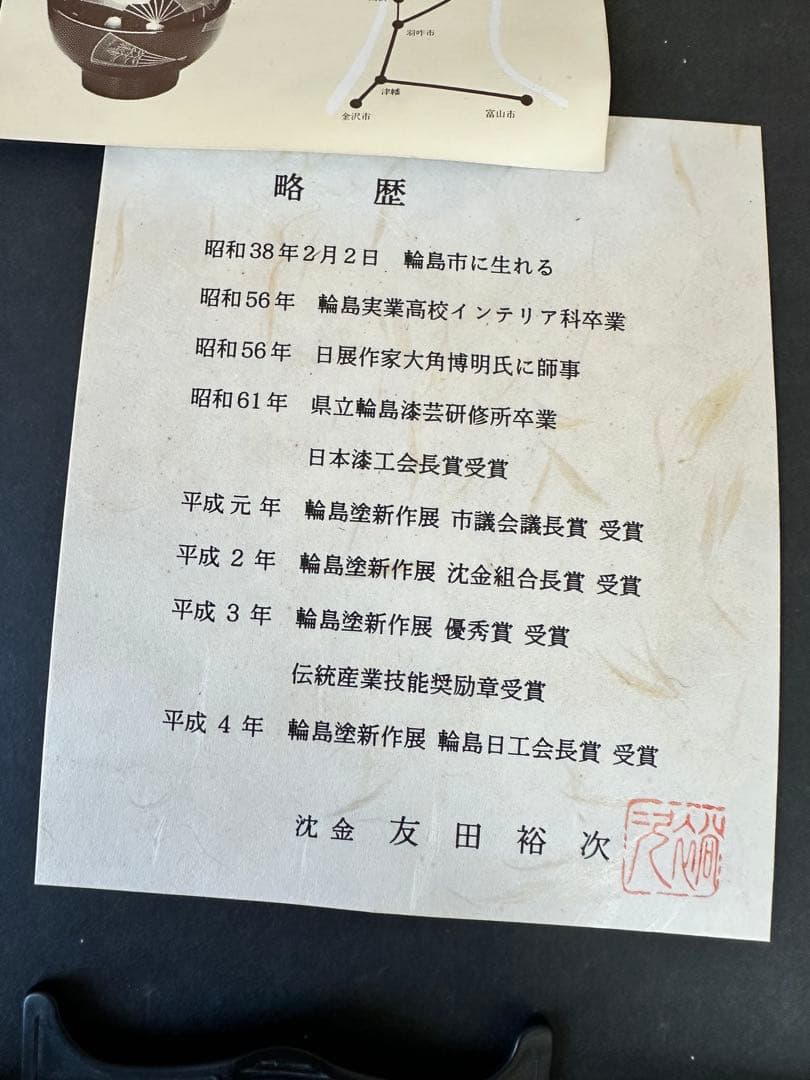 羽咋市
津幡
金沢市
富山市
略歴
昭和38年2月2日 輪島市に生れる
昭和56年 輪島実業高校インテリア科卒業
昭和56年 日展作家大角博明氏に師事
昭和61年 県立輪島漆芸研修所卒業
日本漆工会長賞受賞
平成元年 輪島塗新作展 市議会議長賞 受賞
平成2年 輪島塗新作展 沈金組合長賞 受賞
平成3年 輪島塗新作展 優秀賞 受賞
伝統産業技能奨励章受賞
平成4年 輪島塗新作展 輪島日工会長賞 受賞
沈金 友田裕次